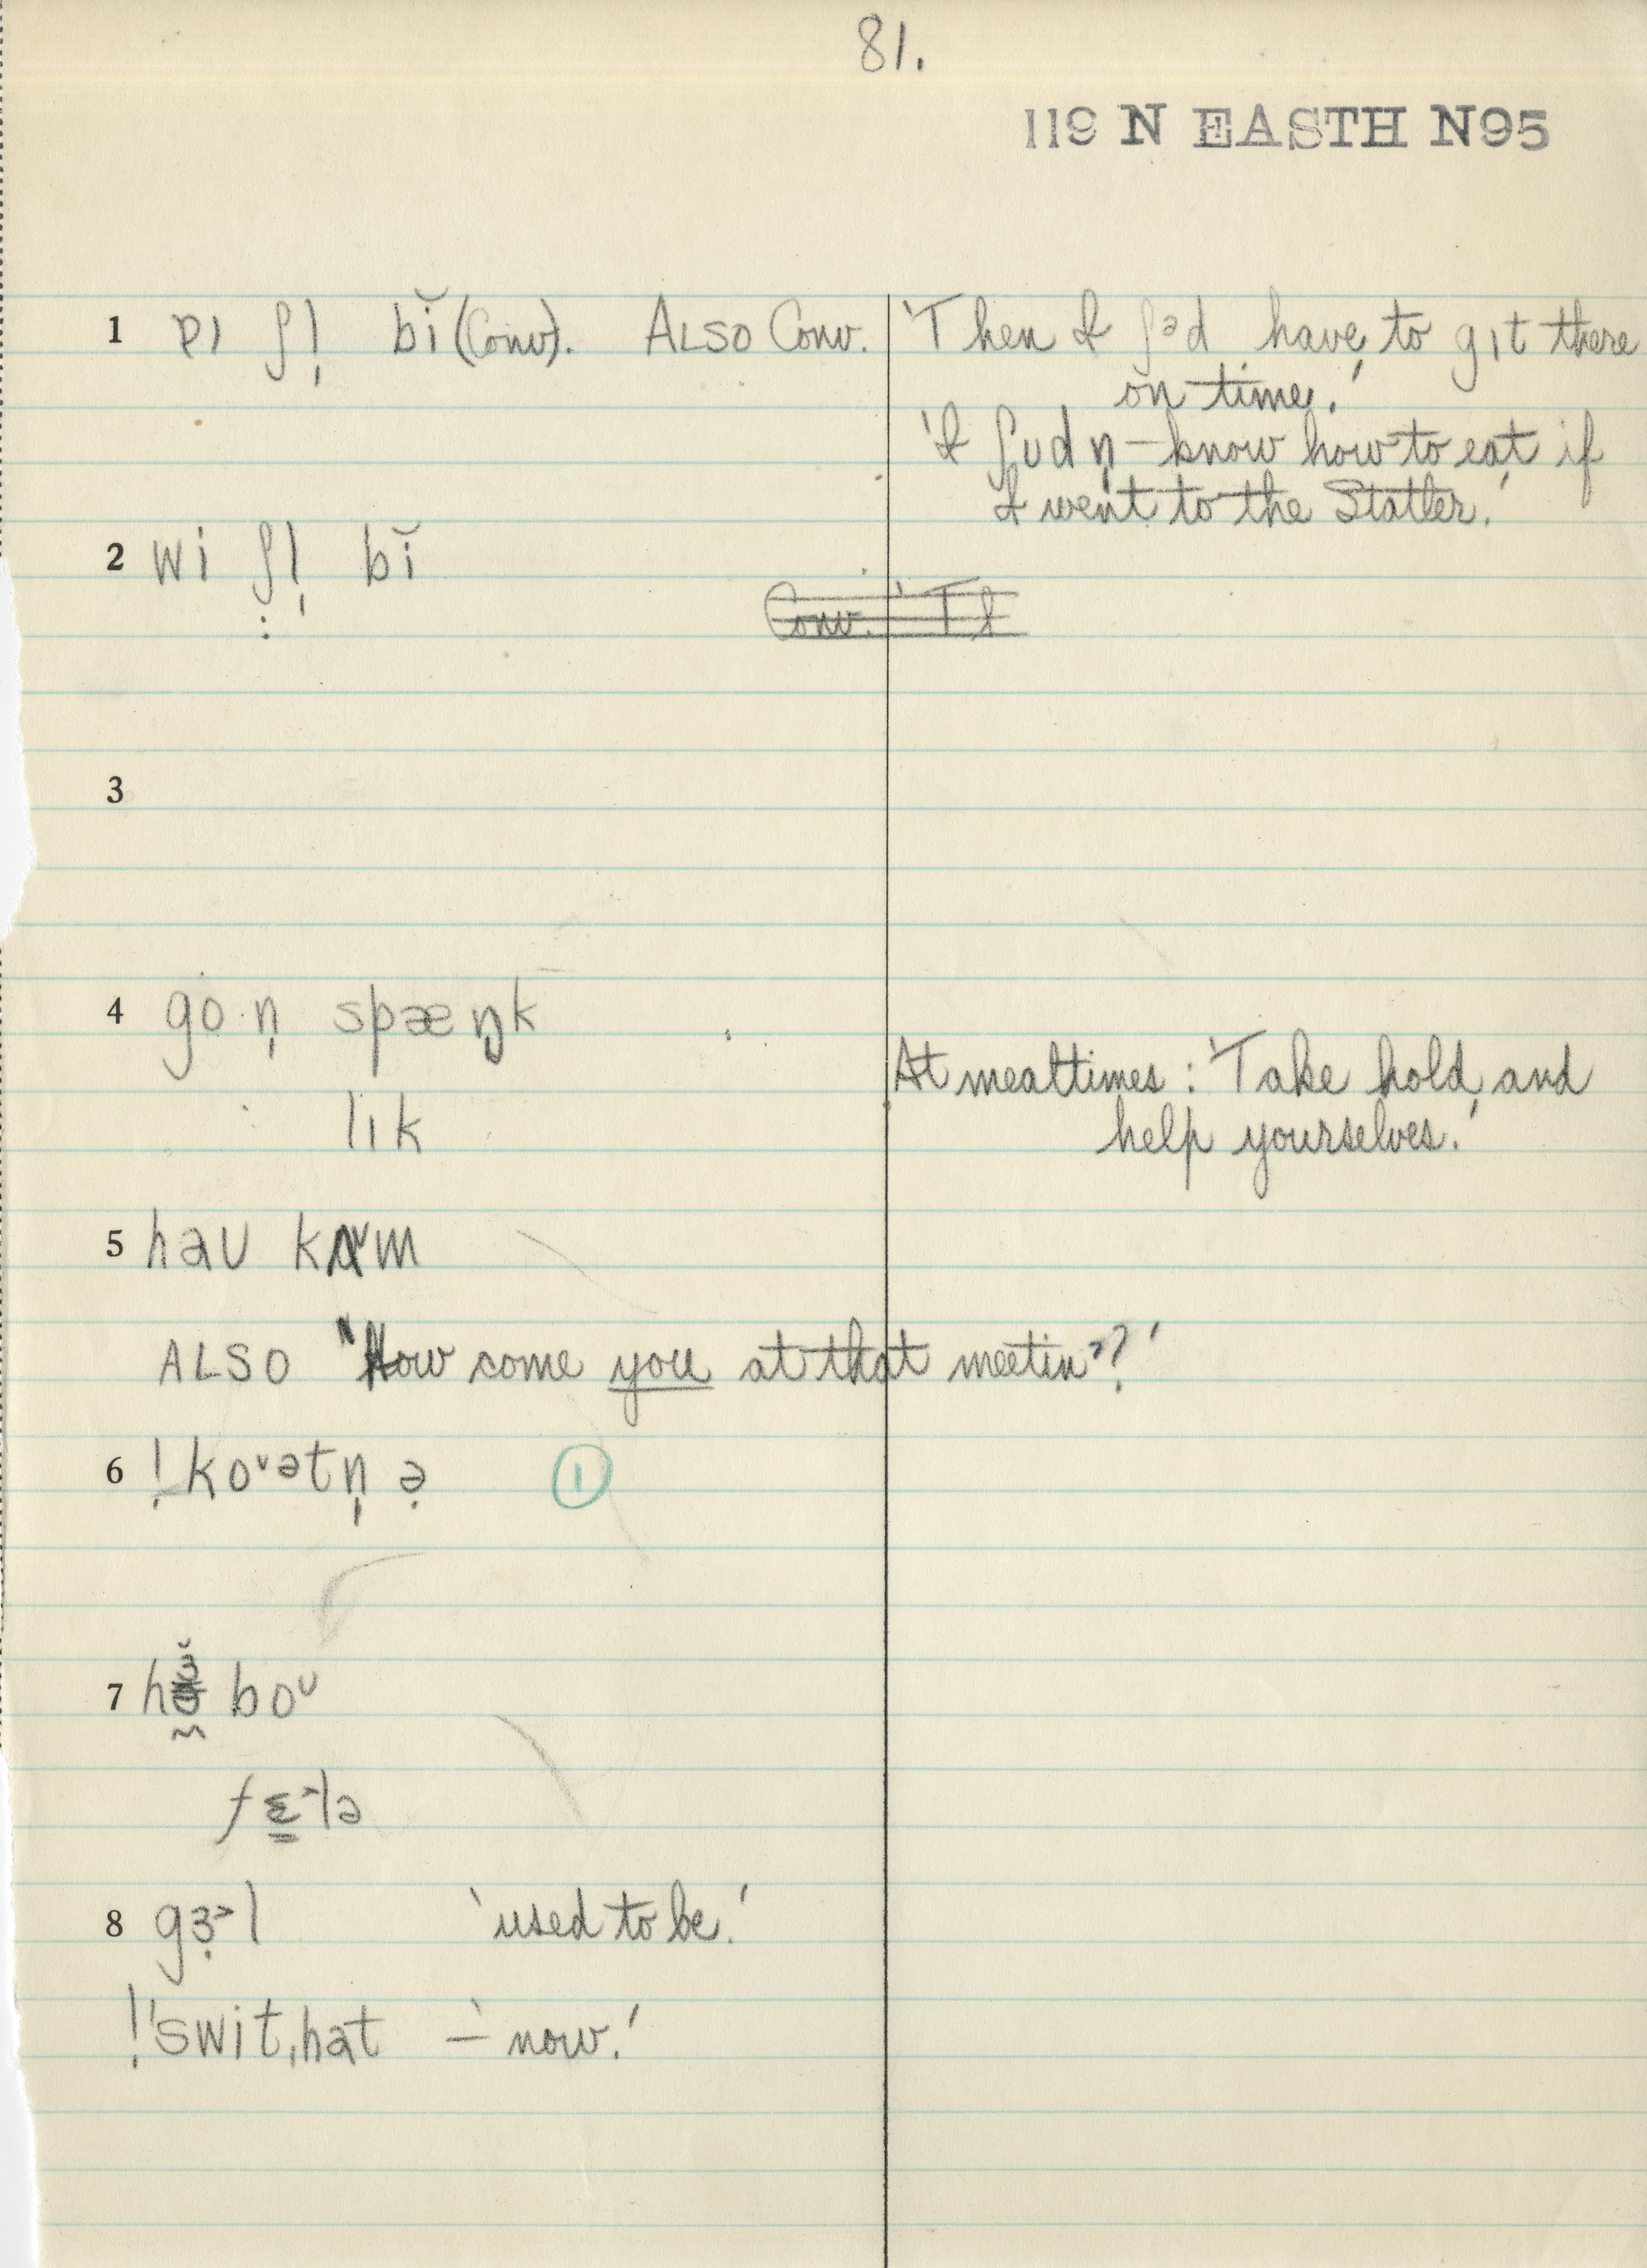 81.
119 N EASTH N95
1 ɒɪ ʃl̩ bĭ (Conv). ALSO Conv. 'Then I ʃəd have to gɪt there
on time.'
'I ʃʊdn̩ — know how to eat if
I went to the Statler.'
2 wi ʃl̩ bĭ
Conv. 'Th
3
4 go·n̩ spæŋk
lɪk
At mealtimes: 'Take hold and
help yourselves.'
5 haʊ kʌm
ALSO "How come you at that meetin'?'
6 ! koᵛətn̩ ə̣ 1
7 boᵁ
fɛ̳˃lə
8 gɜ̣˃l 'used to be.'
! 'swit,hat —' now.'